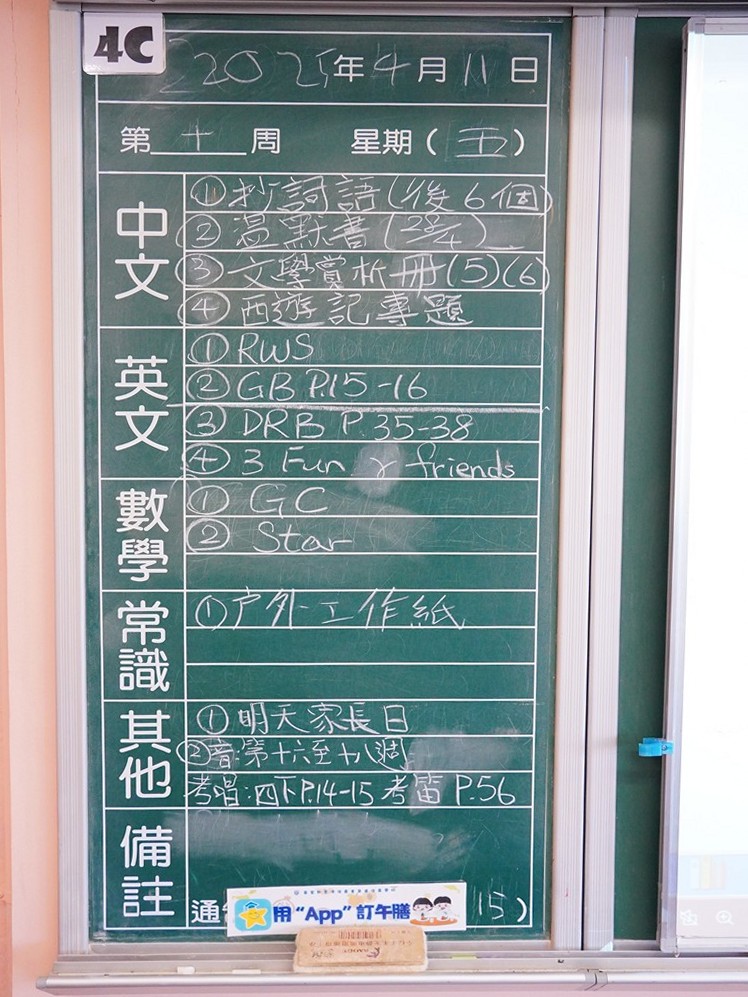 4C
2025年4月11日
第十周 星期(五)
中文
①抄詞語(後6個)
②温默書(28/4)
③文學賞析冊(5)(6)
④西遊記專題
英文
①RWS
②GB P.15-16
③DRB P.35-38
④3 Fun & friends
數學
①GC
②Star
常識
①户外工作紙
其他
①明天家長日
②音:第十六至十八週
考唱:四下P.14-15 考笛 P.56
備註
通
用“App”訂午膳
15)